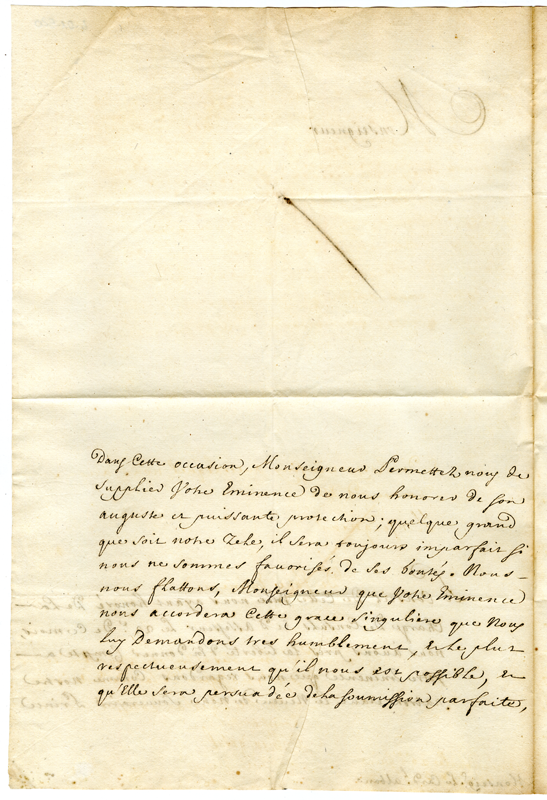 Dans Cette occasion, Monseigneur Permettez nous de
supplier Votre Eminence de nous honorer de son
auguste et puissante protection; quelque grand
que soit notre Zele, il sera toujours imparfait si
nous ne sommes favorisés de ses bontés. Nous
nous flattons, Monseigneur que Votre Eminence
nous accordera Cette grace singuliere que Nous
Luy Demandons tres humblement, et le plus
respectueusement qu'il nous est possible, et
qu'Elle sera persuadée de la soumission parfaite,